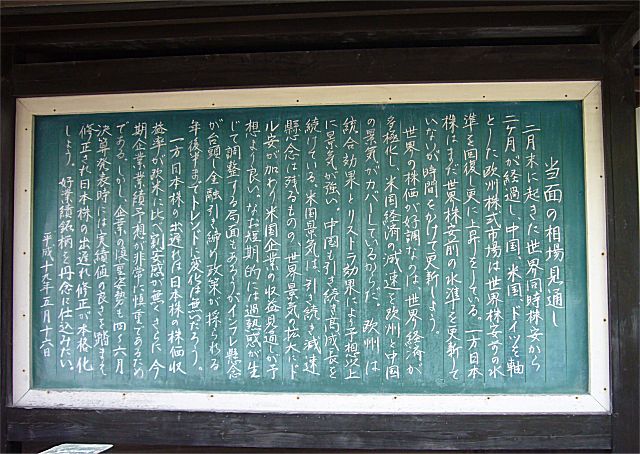 当面の相場見通し
二月末に起きた世界同時株安から
二ヶ月が経過し、中国、米国、ドイツを軸
とした欧州株式市場は世界株安前の水
準を回復し更に上昇をしている。一方日本
株はまだ世界株安前の水準を更新して
いないが時間をかけて更新しよう。
世界の株価が好調なのは世界経済が
多極化し米国経済の減速を欧州と中国
の景気がカバーしているからだ。欧州は
統合効果とリストラ効果により予想以上
に景気が強い。中国も引き続き高成長を
続けている。米国景気は、引き続き減速
懸念は残るものの、世界景気の拡大、ド
ル安が加わり米国企業の収益見通しが予
想より良い。なお短期的には過熱感が生
じて調整する局面もあろうがインフレ懸念
が台頭し金融引き締め政策が採られる
年後半までトレンドに変化は無いだろう。
一方日本株の出遅れは日本株の株価収
益率が欧米に比べ割安感が無く、さらに今
期企業業績予想が非常に慎重であるため
である。しかし、企業の慎重姿勢も四〜六月
決算発表時には実績値の良さを踏まえ
修正され日本株の出遅れ修正が本格化
しよう。好業績銘柄を丹念に仕込みたい。
平成十九年五月十六日